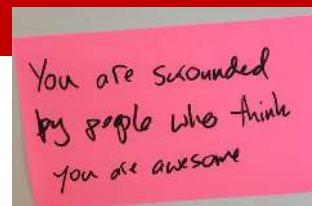 You are surounded
by people who think
you are awesome